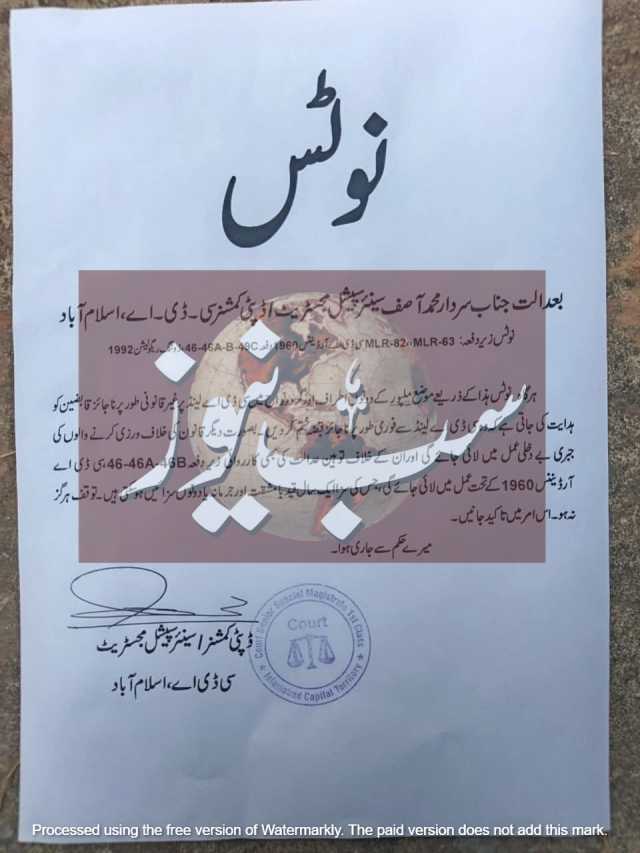 نوٹس
بعدالت جناب سردار محمد آصف سینئر سپیشل مجسٹریٹ / ڈپٹی کمشنر سی۔ڈی۔اے، اسلام آباد
نوٹس زیر دفعہ: MLR-82، MLR-63 سی ڈی اے آرڈیننس 1960 دفعہ 46-46A-B-49C ریگولیشن 1992
ہر گاہ نوٹس ہذا کے ذریعے موضع ملپور کے دونوں اطراف سی ڈی اے لینڈ پر غیر قانونی طور پر ناجائز قابضین کو
ہدایت کی جاتی ہے کہ وہ سی ڈی اے لینڈ سے فوری طور پر ناجائز قبضہ ختم کر دیں۔ بصورت دیگر قانون کی خلاف ورزی کرنے والوں کی
جبری بے دخلی عمل میں لائی جائے گی اور ان کے خلاف توہین عدالت کی بھی کارروائی زیر دفعہ 46-46A-46B سی ڈی اے
آرڈیننس 1960 کے تحت عمل میں لائی جائے گی، جس کی سزا ایک سال قید بامشقت اور جرمانہ یا دونوں سزائیں ہو سکتی ہیں۔ توقف ہرگز
نہ ہو۔ اس امر میں تاکید جانیں۔
میرے حکم سے جاری ہوا۔
سب نیوز
ڈپٹی کمشنر / سینئر سپیشل مجسٹریٹ
سی ڈی اے، اسلام آباد
Court Senior Special Magistrate 1st Class
Court
Islamabad Capital Territory
Processed using the free version of Watermarkly. The paid version does not add this mark.